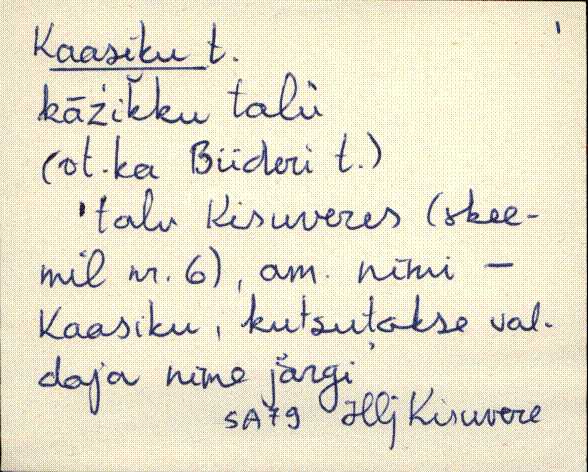 1
Kaasiku t.
kāžikku talù
(ot. ka Büderi t.)
'talu Kisuveres (skee-
mil nr. 6), am. nimi –
Kaasiku, kutsutakse val-
daja nime järgi'
SA79 Hlj Kisuvere